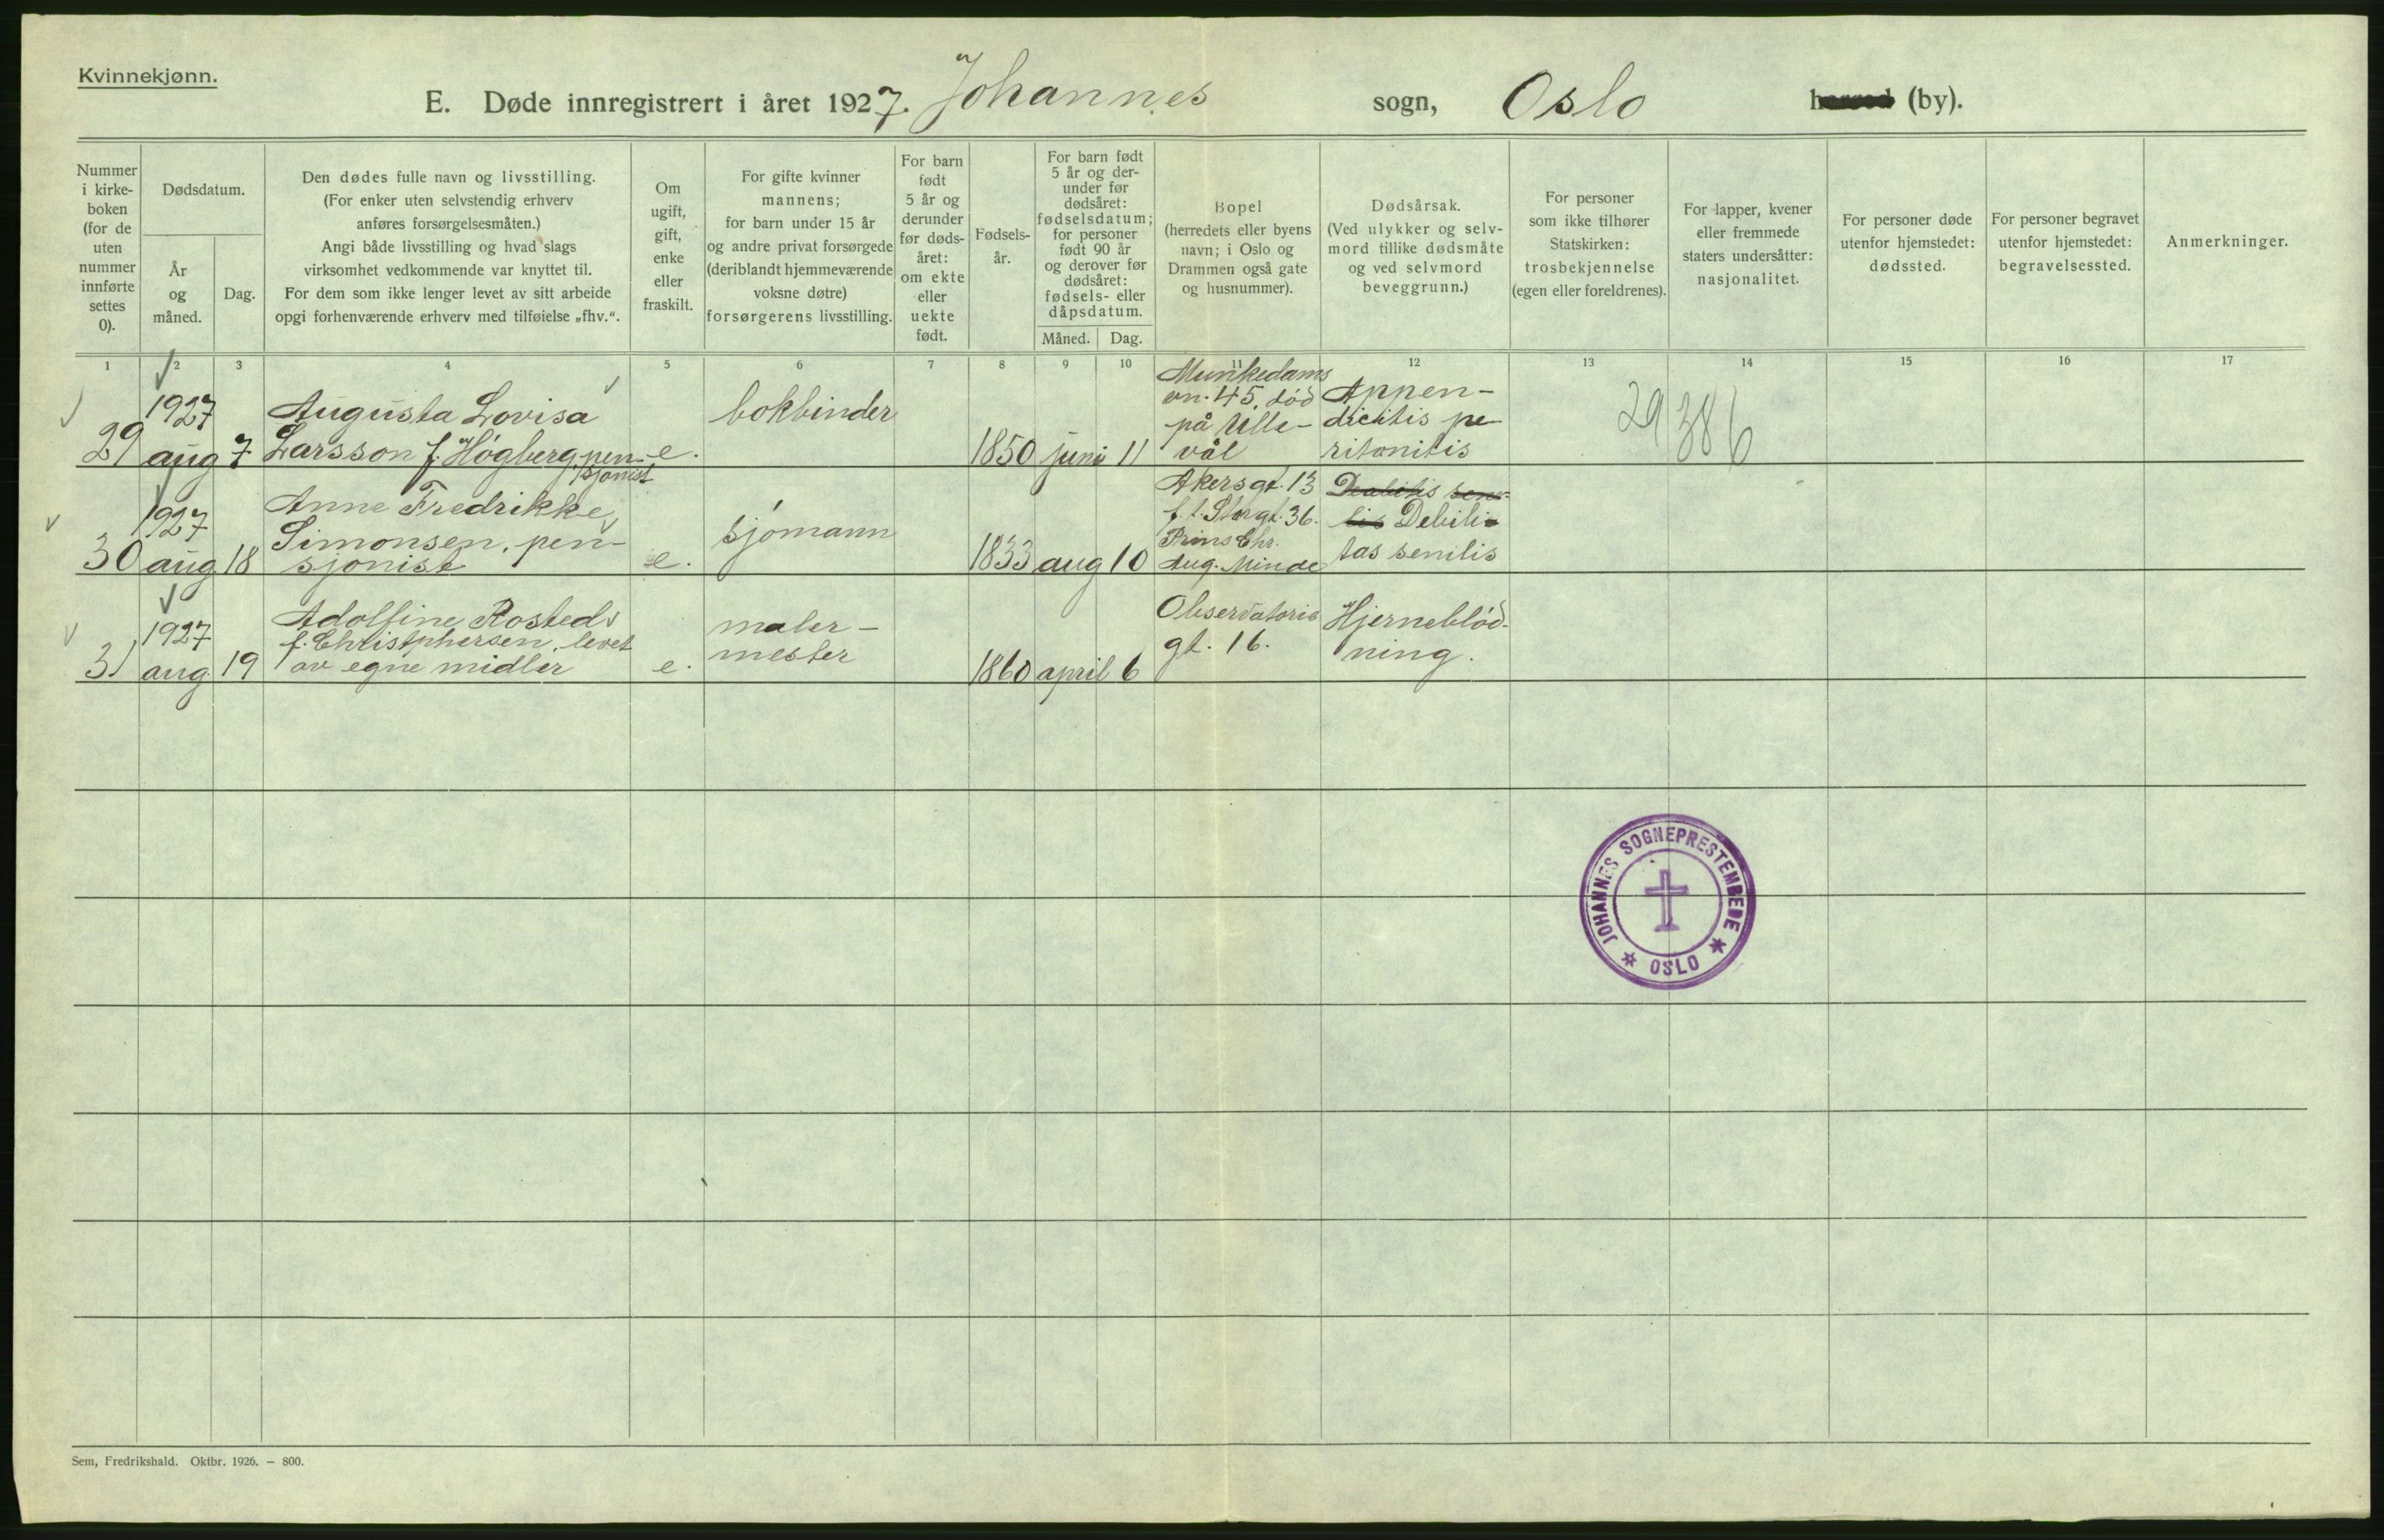 Kvinnekjønn.
E. Døde innregistrert i året 1927. Johannes sogn, Oslo herred (by).
Nummer
i kirke-
boken
(for de
uten
nummer
innførte
settes
0).
Dødsdatum.
År
og
måned.
Dag.
Den dødes fulle navn og livsstilling.
(For enker uten selvstendig erhverv
anføres forsørgelsesmåten.)
Angi både livsstilling og hvad slags
virksomhet vedkommende var knyttet til.
For dem som ikke lenger levet av sitt arbeide
opgi forhenværende erhverv med tilføielse „fhv.“.
Om
ugift,
gift,
enke
eller
fraskilt.
For gifte kvinner
mannens;
for barn under 15 år
og andre privat forsørgede
(deriblandt hjemmeværende
voksne døtre)
forsørgerens livsstilling.
For barn
født
5 år og
derunder
før døds-
året:
om ekte
eller
uekte
født.
Fødsels-
år.
For barn født
5 år og der-
under før
dødsåret:
fødselsdatum;
for personer
født 90 år
og derover før
dødsåret:
fødsels- eller
dåpsdatum.
Måned. Dag.
Bopel
(herredets eller byens
navn; i Oslo og
Drammen også gate
og husnummer).
Dødsårsak.
(Ved ulykker og selv-
mord tillike dødsmåte
og ved selvmord
beveggrunn.)
For personer
som ikke tilhører
Statskirken:
trosbekjennelse
(egen eller foreldrenes).
For lapper, kvener
eller fremmede
staters undersåtter:
nasjonalitet.
For personer døde
utenfor hjemstedet:
dødssted.
For personer begravet
utenfor hjemstedet:
begravelsessted.
Anmerkninger.
1 2 3 4 5 6 7 8 9 10 11 12 13 14 15 16 17
29
1927
aug
7
Augusta Lovisa
Larsson f. Høgberg, pen-
sjonist
e.
bokbinder
1850
juni
11
Munkedams
vn. 45, død
på Ulle-
vål
Appen-
dicitis pe
ritonitis
29386
30
1927
aug
18
Anne Fredrikke
Simonsen, pen-
sjonist
e.
sjømann
1833
aug
10
Akersgt. 13
f. t. Storgt. 36.
Prins Chr.
Aug. Minde
Debili
tas senilis
31
1927
aug.
19
Adolfine Rosted
f. Christphersen, levet
av egne midler
e.
maler-
mester
1860
april
6
Observatorie
gt. 16.
Hjerneblød-
ning.
JOHANNES SOGNEPRESTEMBEDE
* OSLO *
Sem, Fredrikshald. Oktbr. 1926. – 800.